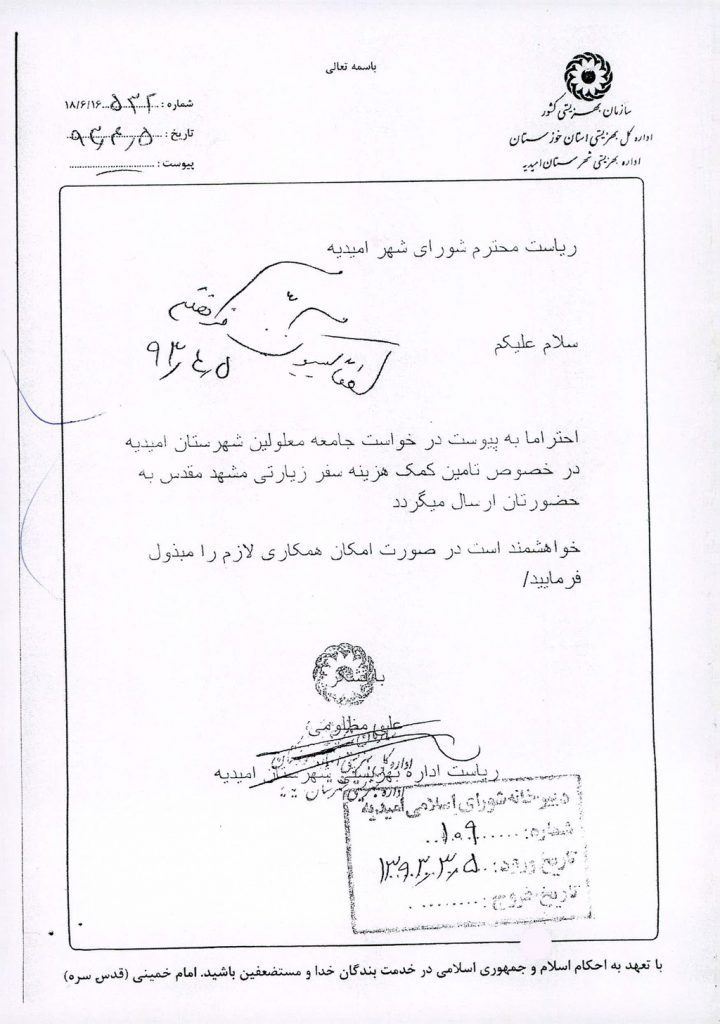 باسمه تعالی
سازمان بهزیستی کشور
اداره کل بهزیستی استان خوزستان
اداره بهزیستی شهرستان امیدیه
شماره : ۱۸/۶/۱۶...۵۳۲
تاریخ :
پیوست :
ریاست محترم شورای شهر امیدیه
سلام علیکم
احتراما به پیوست در خواست جامعه معلولین شهرستان امیدیه
در خصوص تامین کمک هزینه سفر زیارتی مشهد مقدس به
حضورتان ارسال میگردد
خواهشمند است در صورت امکان همکاری لازم را مبذول
فرمایید/
با تشکر
علی مظلومی
ریاست اداره بهزیستی شهرستان امیدیه
دبیرخانه شورای اسلامی امیدیه
شماره: ۱۰۹
تاریخ ورود:
تاریخ خروج:
با تعهد به احکام اسلام و جمهوری اسلامی در خدمت بندگان خدا و مستضعفین باشید. امام خمینی (قدس سره)